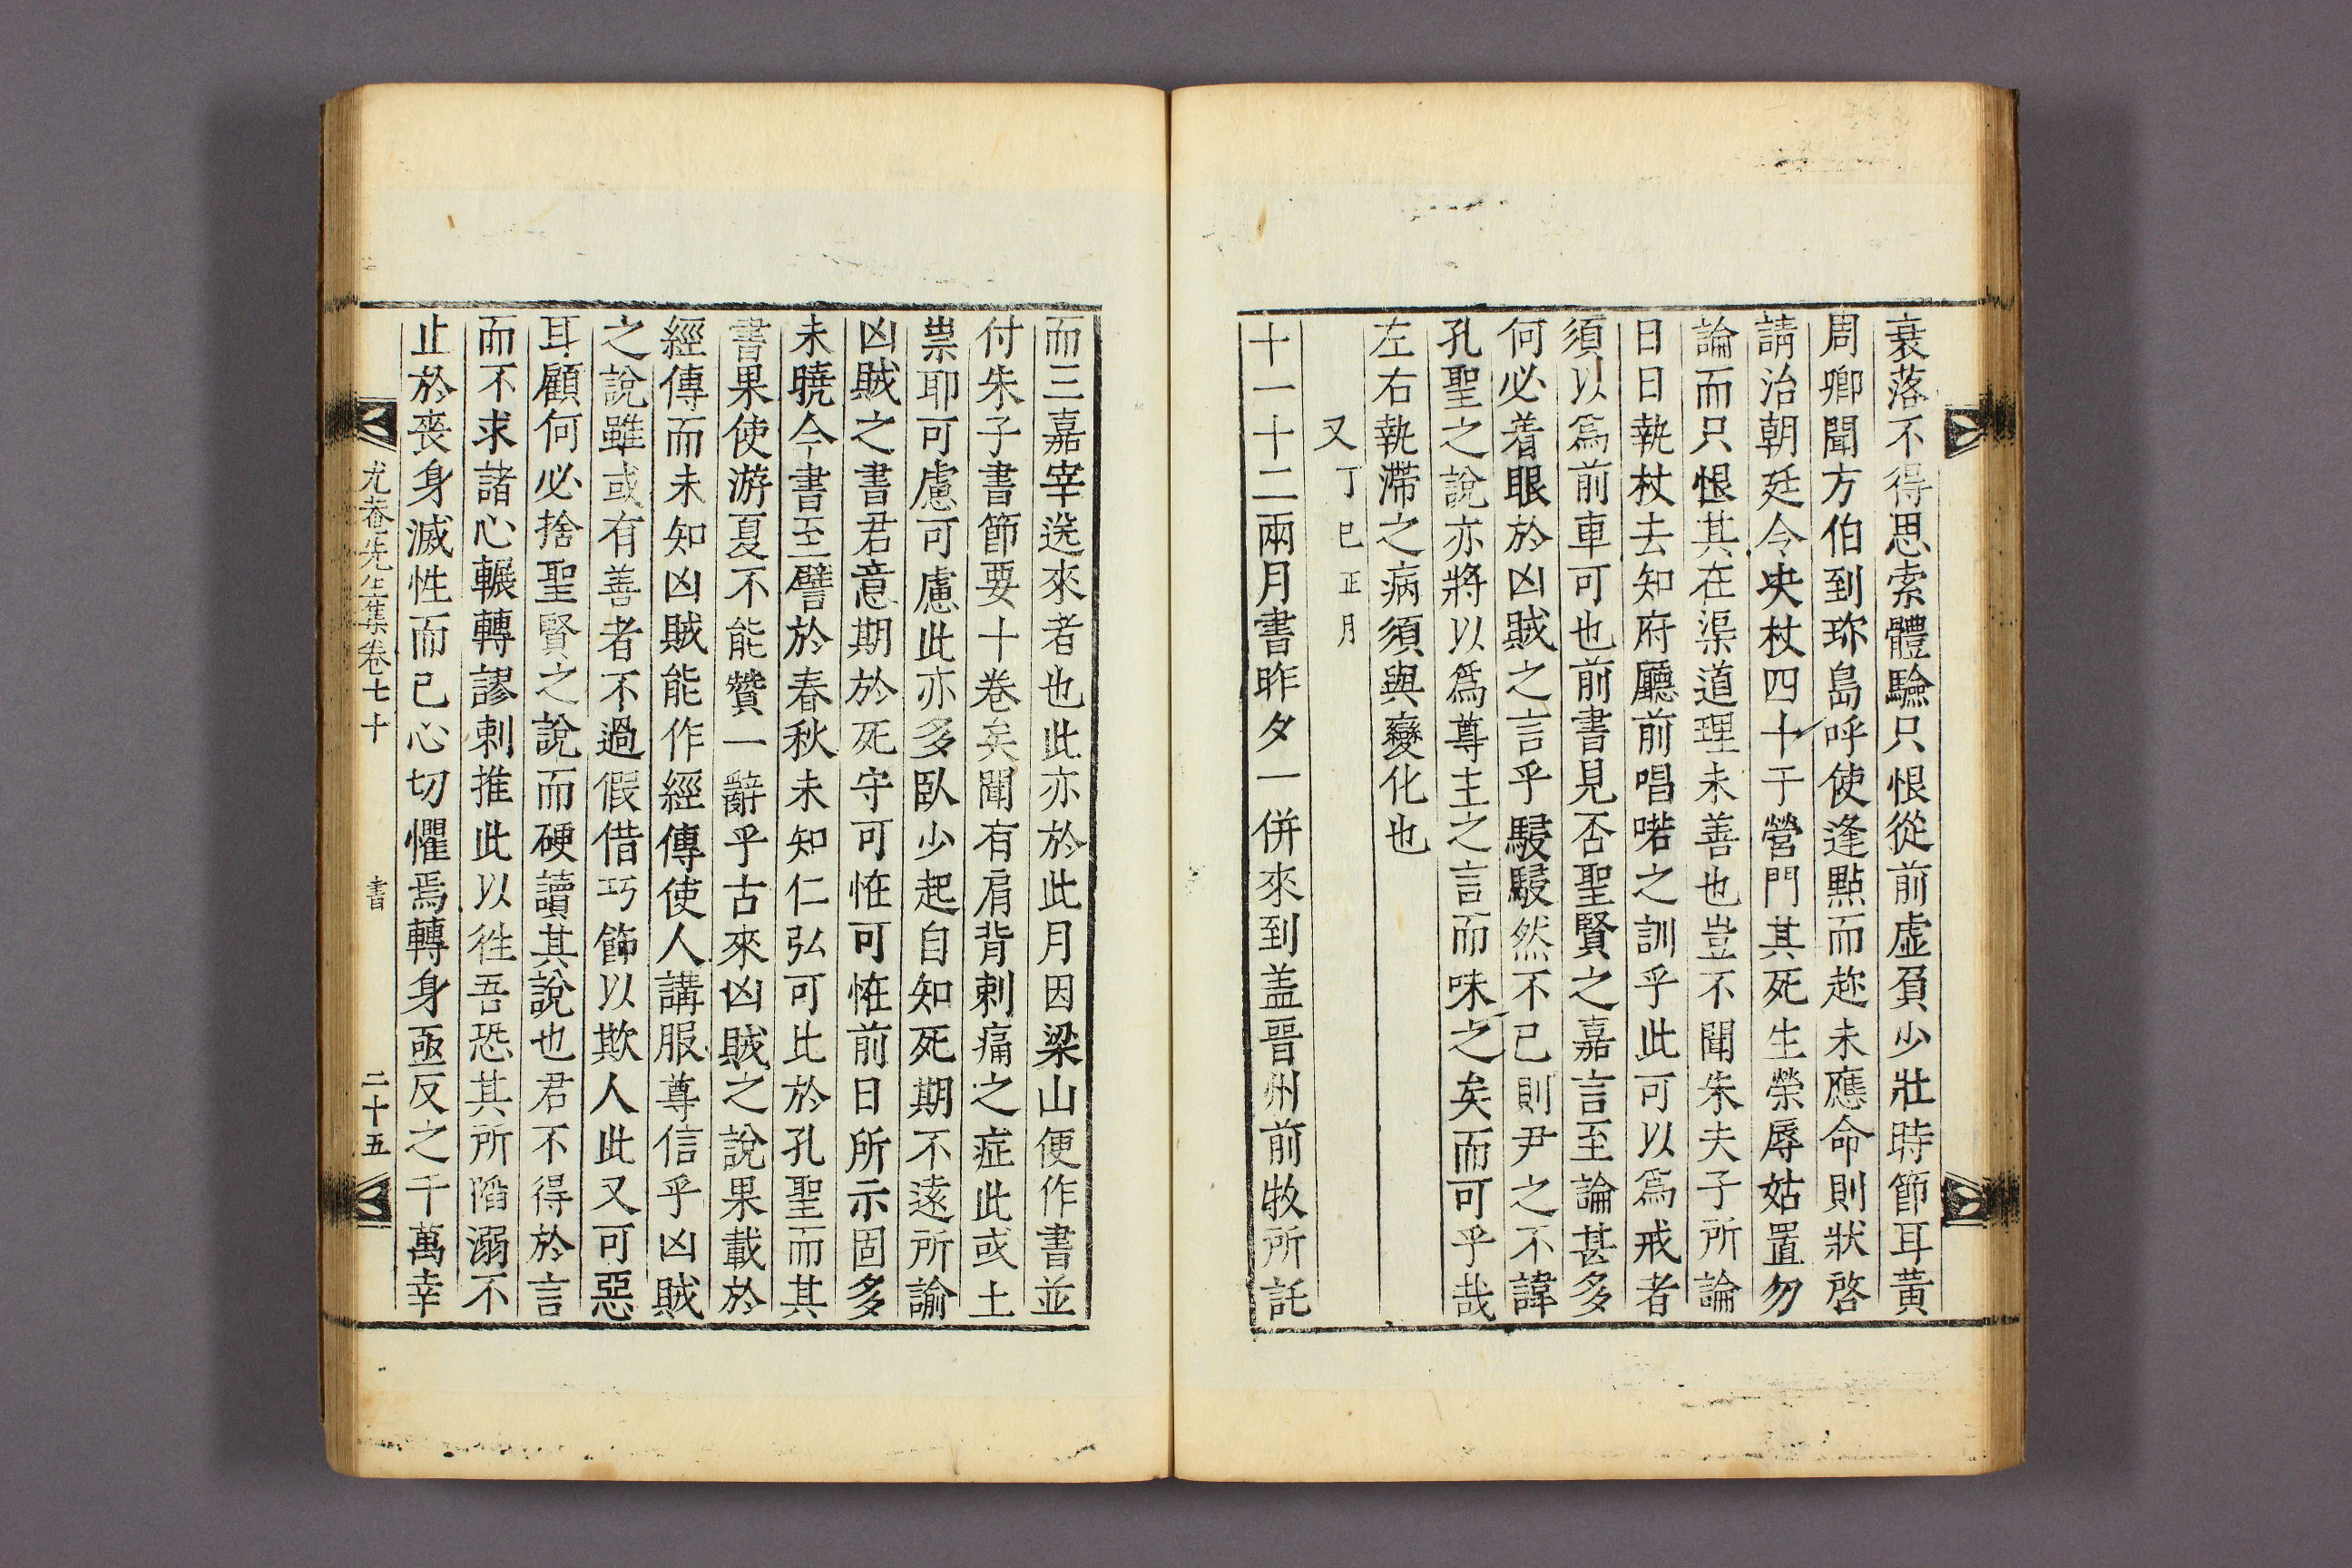 衰落不得思索體驗只恨從前虛負少壯時節耳黃
周卿聞方伯到珎島呼使逢點而趂未應命則狀啓
請治朝廷令决杖四十于營門其死生榮辱姑置勿
論而只恨其在渠道理未善也豈不聞朱夫子所論
日日執杖去知府廳前唱喏之訓乎此可以爲戒者
須以爲前車可也前書見否聖賢之嘉言至論甚多
何必着眼於凶賊之言乎駸駸然不已則尹之不諱
孔聖之說亦將以爲尊主之言而味之矣而可乎哉
左右執滯之病須與變化也
又丁巳正月
十一十二兩月書昨夕一倂來到盖晉州前牧所託
而三嘉宰送來者也此亦於此月因梁山便作書並
付朱子書節要十卷矣聞有肩背剌痛之症此或土
祟耶可慮可慮此亦多臥少起自知死期不遠所諭
凶賊之書君意期於死守可恠可恠前日所示固多
未曉今書至譬於春秋未知仁弘可比於孔聖而其
書果使游夏不能贊一辭乎古來凶賊之說果載於
經傳而未知凶賊能作經傳使人講服尊信乎凶賊
之說雖或有善者不過假借巧飾以欺人此又可惡
耳顧何必捨聖賢之說而硬讀其說也君不得於言
而不求諸心輾轉謬剌推此以徃吾恐其所陷溺不
止於喪身滅性而已心切懼焉轉身亟反之千萬幸
尤菴先生集卷七十 書 二十五